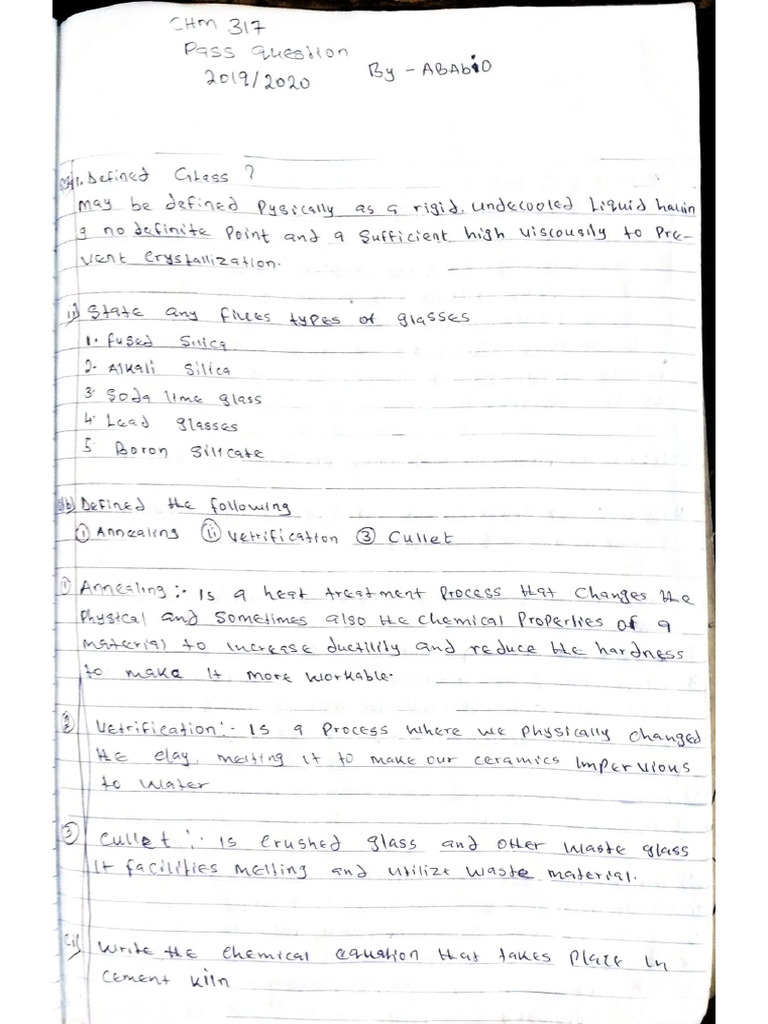 CHM 317
Pass Question
2019/2020 By - ABAbiO
1. Defined Glass?
may be defined Pysically as a rigid, undecooled Liquid havin
g no definite Point and a Sufficient high viscousily to Pre-
vent Crystallization.
ii) State any fives types of glasses
1. fused Silica
2. Alkali Silica
3. Soda lime glass
4. Lead glasses
5 Boron Silicate
b) Defined the following
① Annealing ⓘⓘ Vetrification ③ Cullet
① Annealing:- Is a heat treatment Process that Changes the
Physical and sometimes also the chemical Properties of a
material to increase ductility and reduce the hardness
to make it more workable.
② Vetrification:- Is a Process where we physically changed
the clay, melting it to make our ceramics Impervious
to water
③ Cullet:- is Crushed glass and other waste glass
It facilities melting and utilize waste material.
ii) Write the chemical equation that takes Place in
Cement kiln